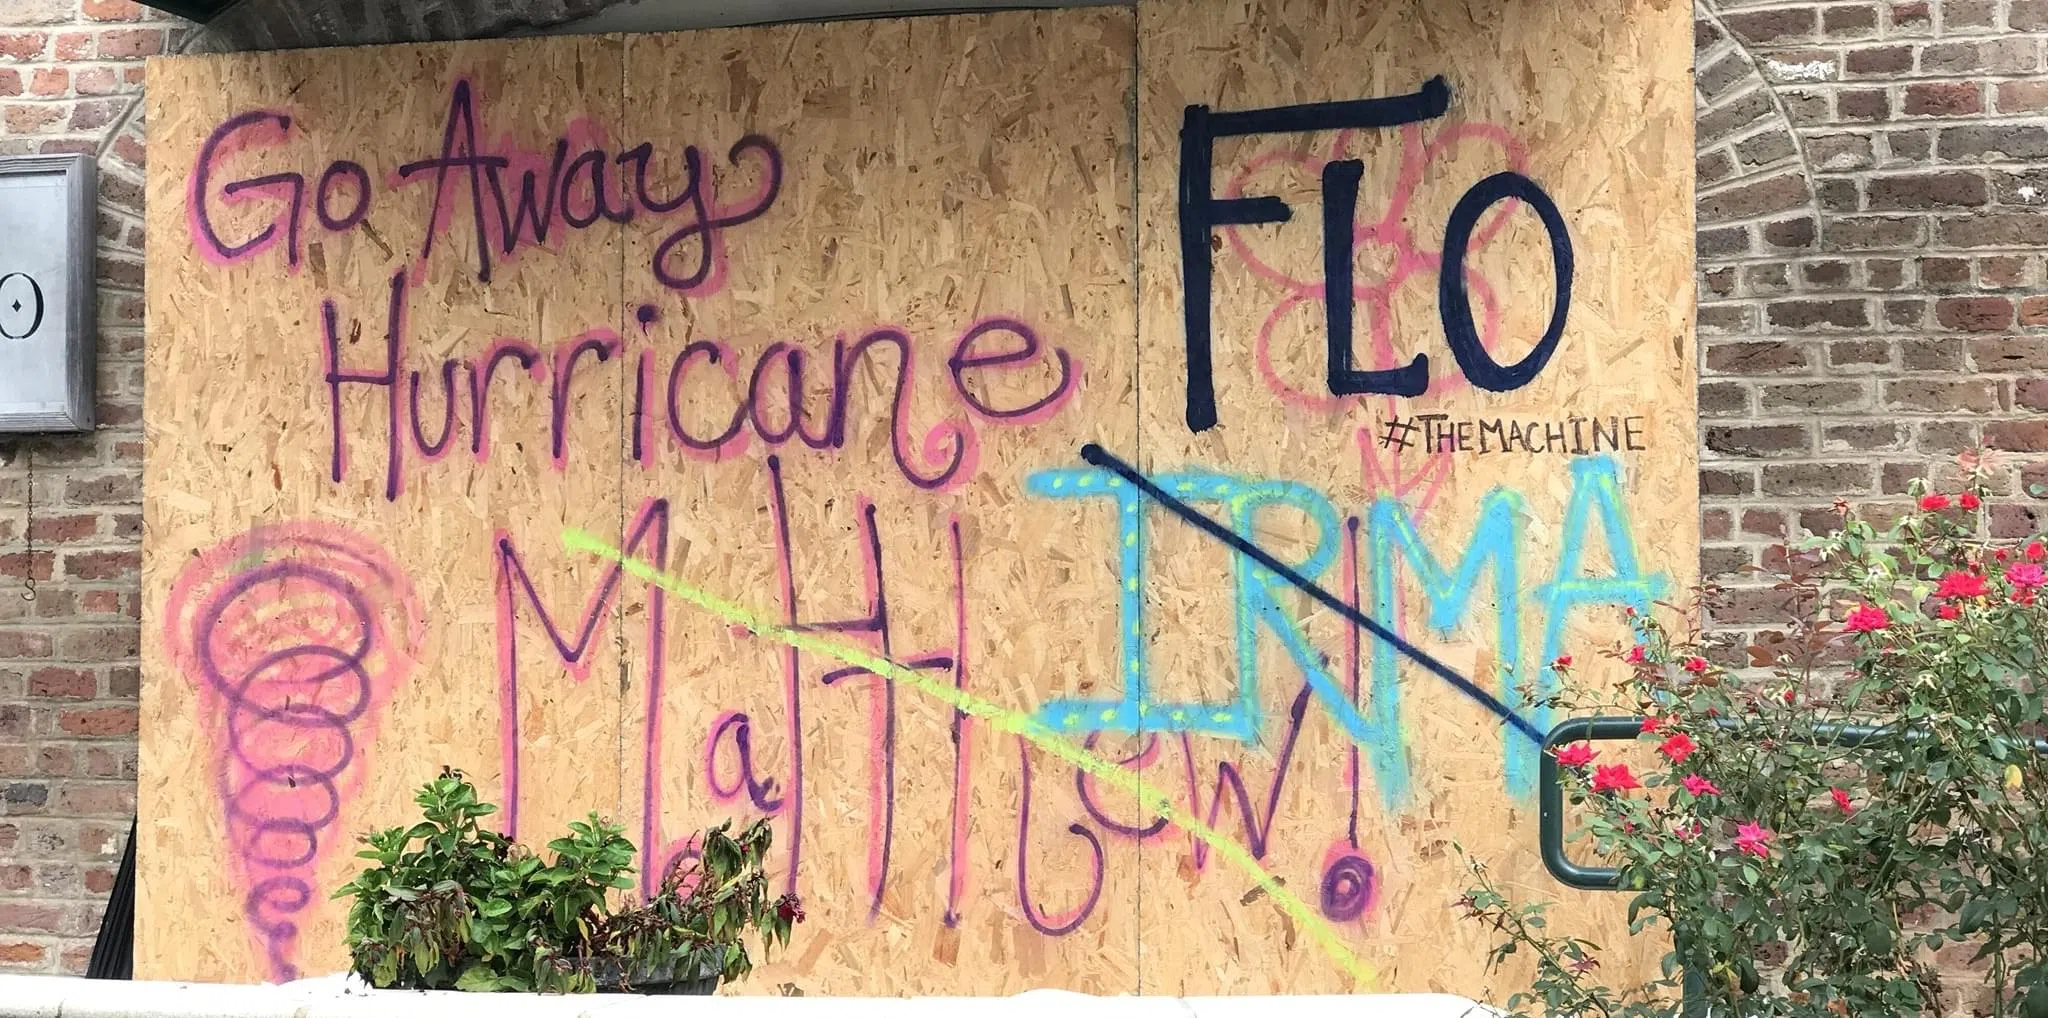 O
Go Away
Hurricane
Matthew!
FLO
#THEMACHINE
IRMA